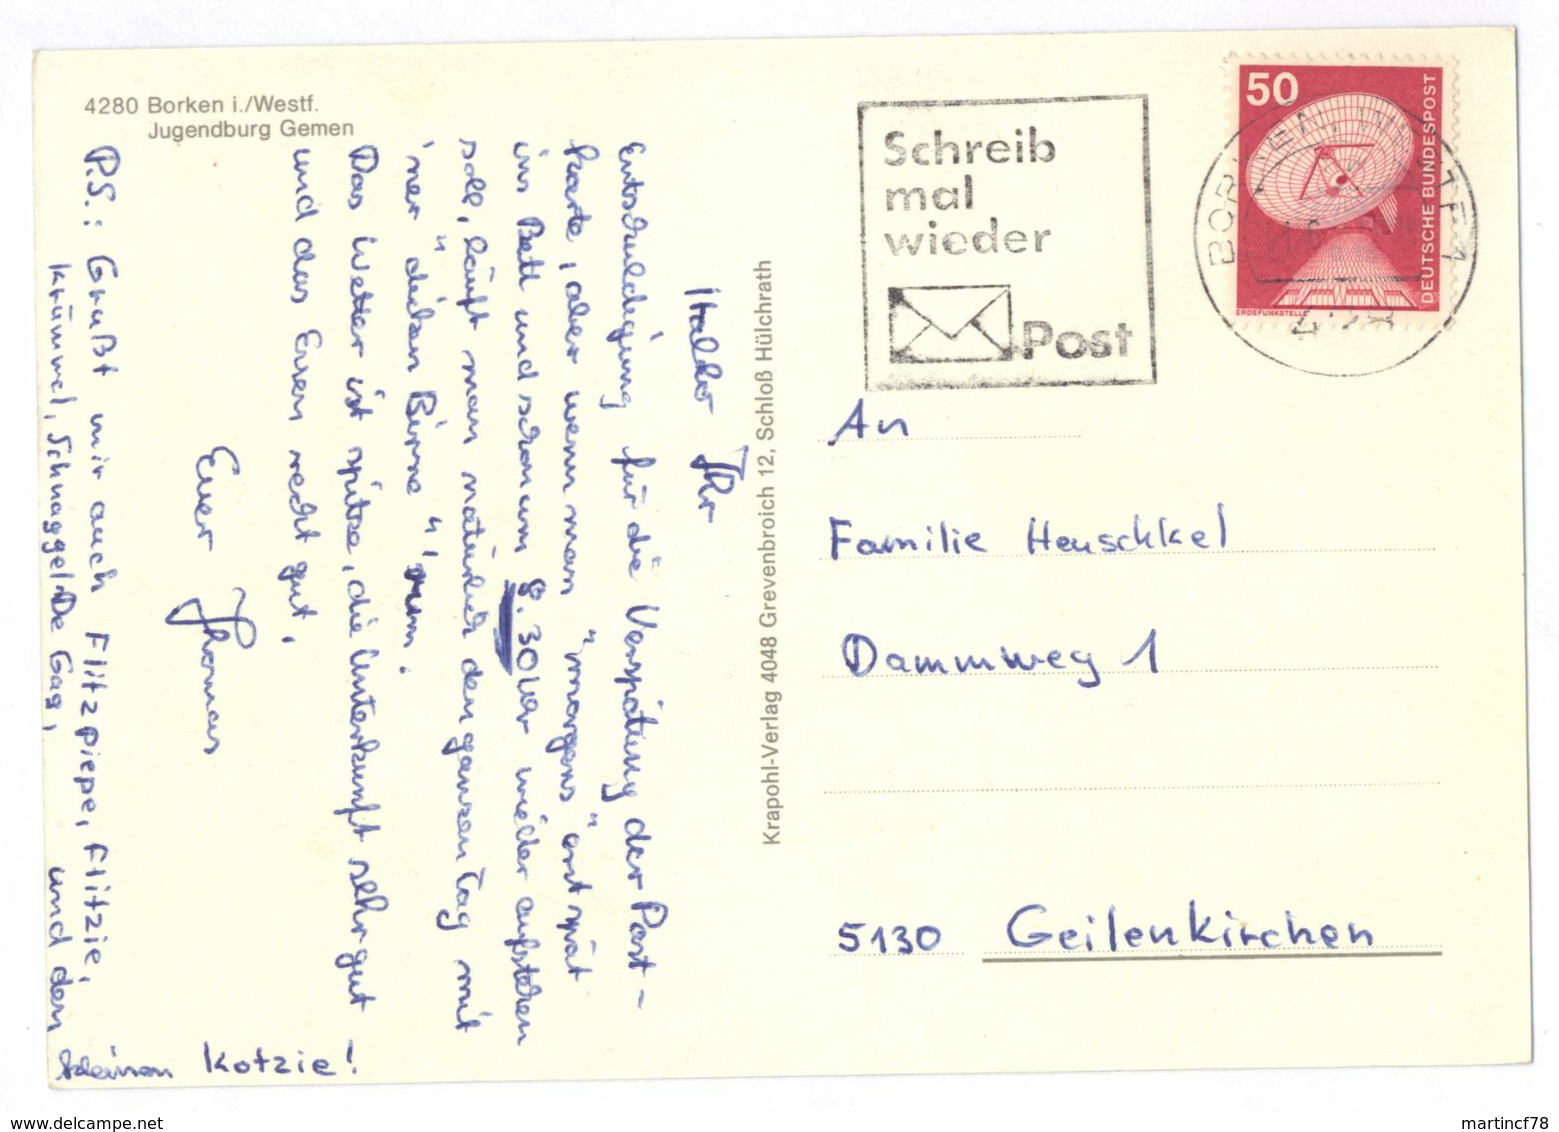 4280 Borken i./Westf.
Jugendburg Gemen
Hallo Ihr
Entschuldigung für die Verspätung der Post-
karte, aber wenn man "morgens" erst spät
ins Bett und schon um 8.30 Uhr wieder aufstehen
soll, läuft man natürlich den ganzen Tag mit
'ner "dicken Birne" 'rum.
Das Wetter ist spitze, die Unterkunft sehr gut
und das Essen recht gut.
Euer Thomas
P.S.: Grüßt mir auch Flitzpiepe, Flitzie,
Krümmel, Schnaggel, De Gag, und den
kleinen Kotzie!
Krapohl-Verlag 4048 Grevenbroich 12, Schloß Hülchrath
Schreib
mal
wieder
Post
50
DEUTSCHE BUNDESPOST
ERDEFUNKSTELLE
BORKEN, WESTF 1
An
Familie Henschkel
Dammweg 1
5130 Geilenkirchen
www.delcampe.net
martincf78